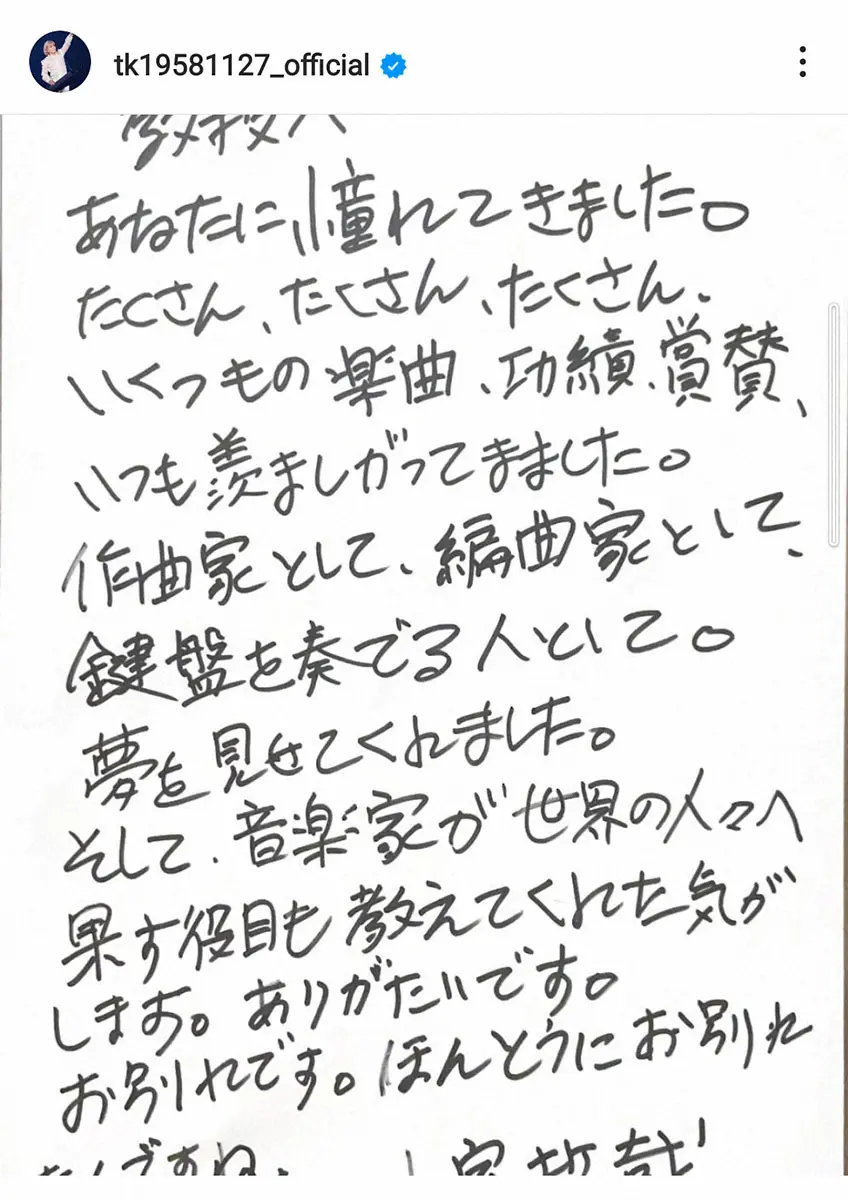 tk19581127_official
教授へ
あなたに憧れてきました。
たくさん、たくさん、たくさん、
いくつもの楽曲、功績、賞賛、
いつも羨ましがってまました。
作曲家として、編曲家として、
鍵盤を奏でる人として。
夢を見せてくれました。
そして、音楽家が世界の人々へ
果す役目も教えてくれた気が
します。ありがたいです。
お別れです。ほんとうにお別れ
なんですね、小室哲哉